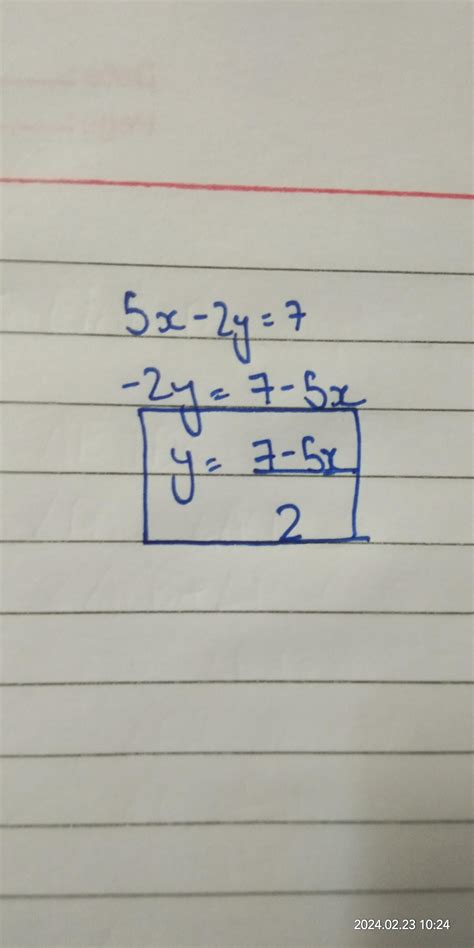 5x-2y=7
-2y= 7-5x
y= 7-5x
2
2024.02.23 10:24